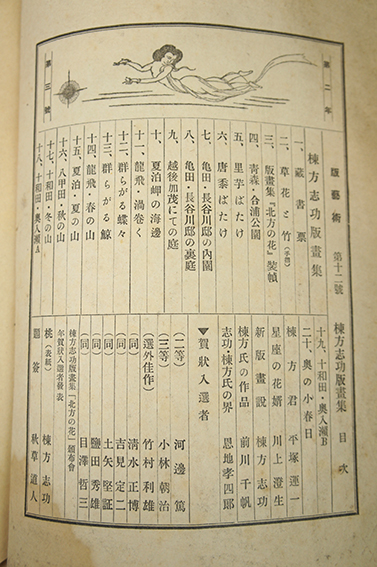 第二年
第三號
版藝術　第十二號　棟方志功版畫集　目次
棟方志功版畫集
一、藏書票
二、草花と竹(手摺)
三、版畫集『北方の花』裝幀
四、青森・合浦公園
五、里芋ばたけ
六、唐黍ばたけ
七、亀田・長谷川邸の內園
八、亀田・長谷川邸の裏庭
九、越後加茂にての庭
十、夏泊岬の海邊
十一、龍飛・渦巻く
十二、群らがる蝶々
十三、群らがる鯨
十四、龍飛・春の山
十五、夏泊・夏の山
十六、八甲田・秋の山
十七、十和田・冬の山
十八、十和田・奥入瀬A
十九、十和田・奥入瀬B
二十、奥の小春日
棟方君　平塚運一
星座の花婿　川上澄生
新版畫説　棟方志功
棟方氏の作品　前川千帆
志功・棟方氏の界　恩地孝四郎
▼賀狀入選者
(二等)　河邊篤
(三等)　小林朝治
(選外佳作)　竹村利雄
(同)　清水正博
(同)　吉見定二
(同)　土矢堅証
(同)　鹽田秀雄
(同)　目澤哲三
棟方志功版畫集『北方の花』頒布會
年賀狀入選者發表
桃(表紙)　棟方志功
題簽　秋草道人